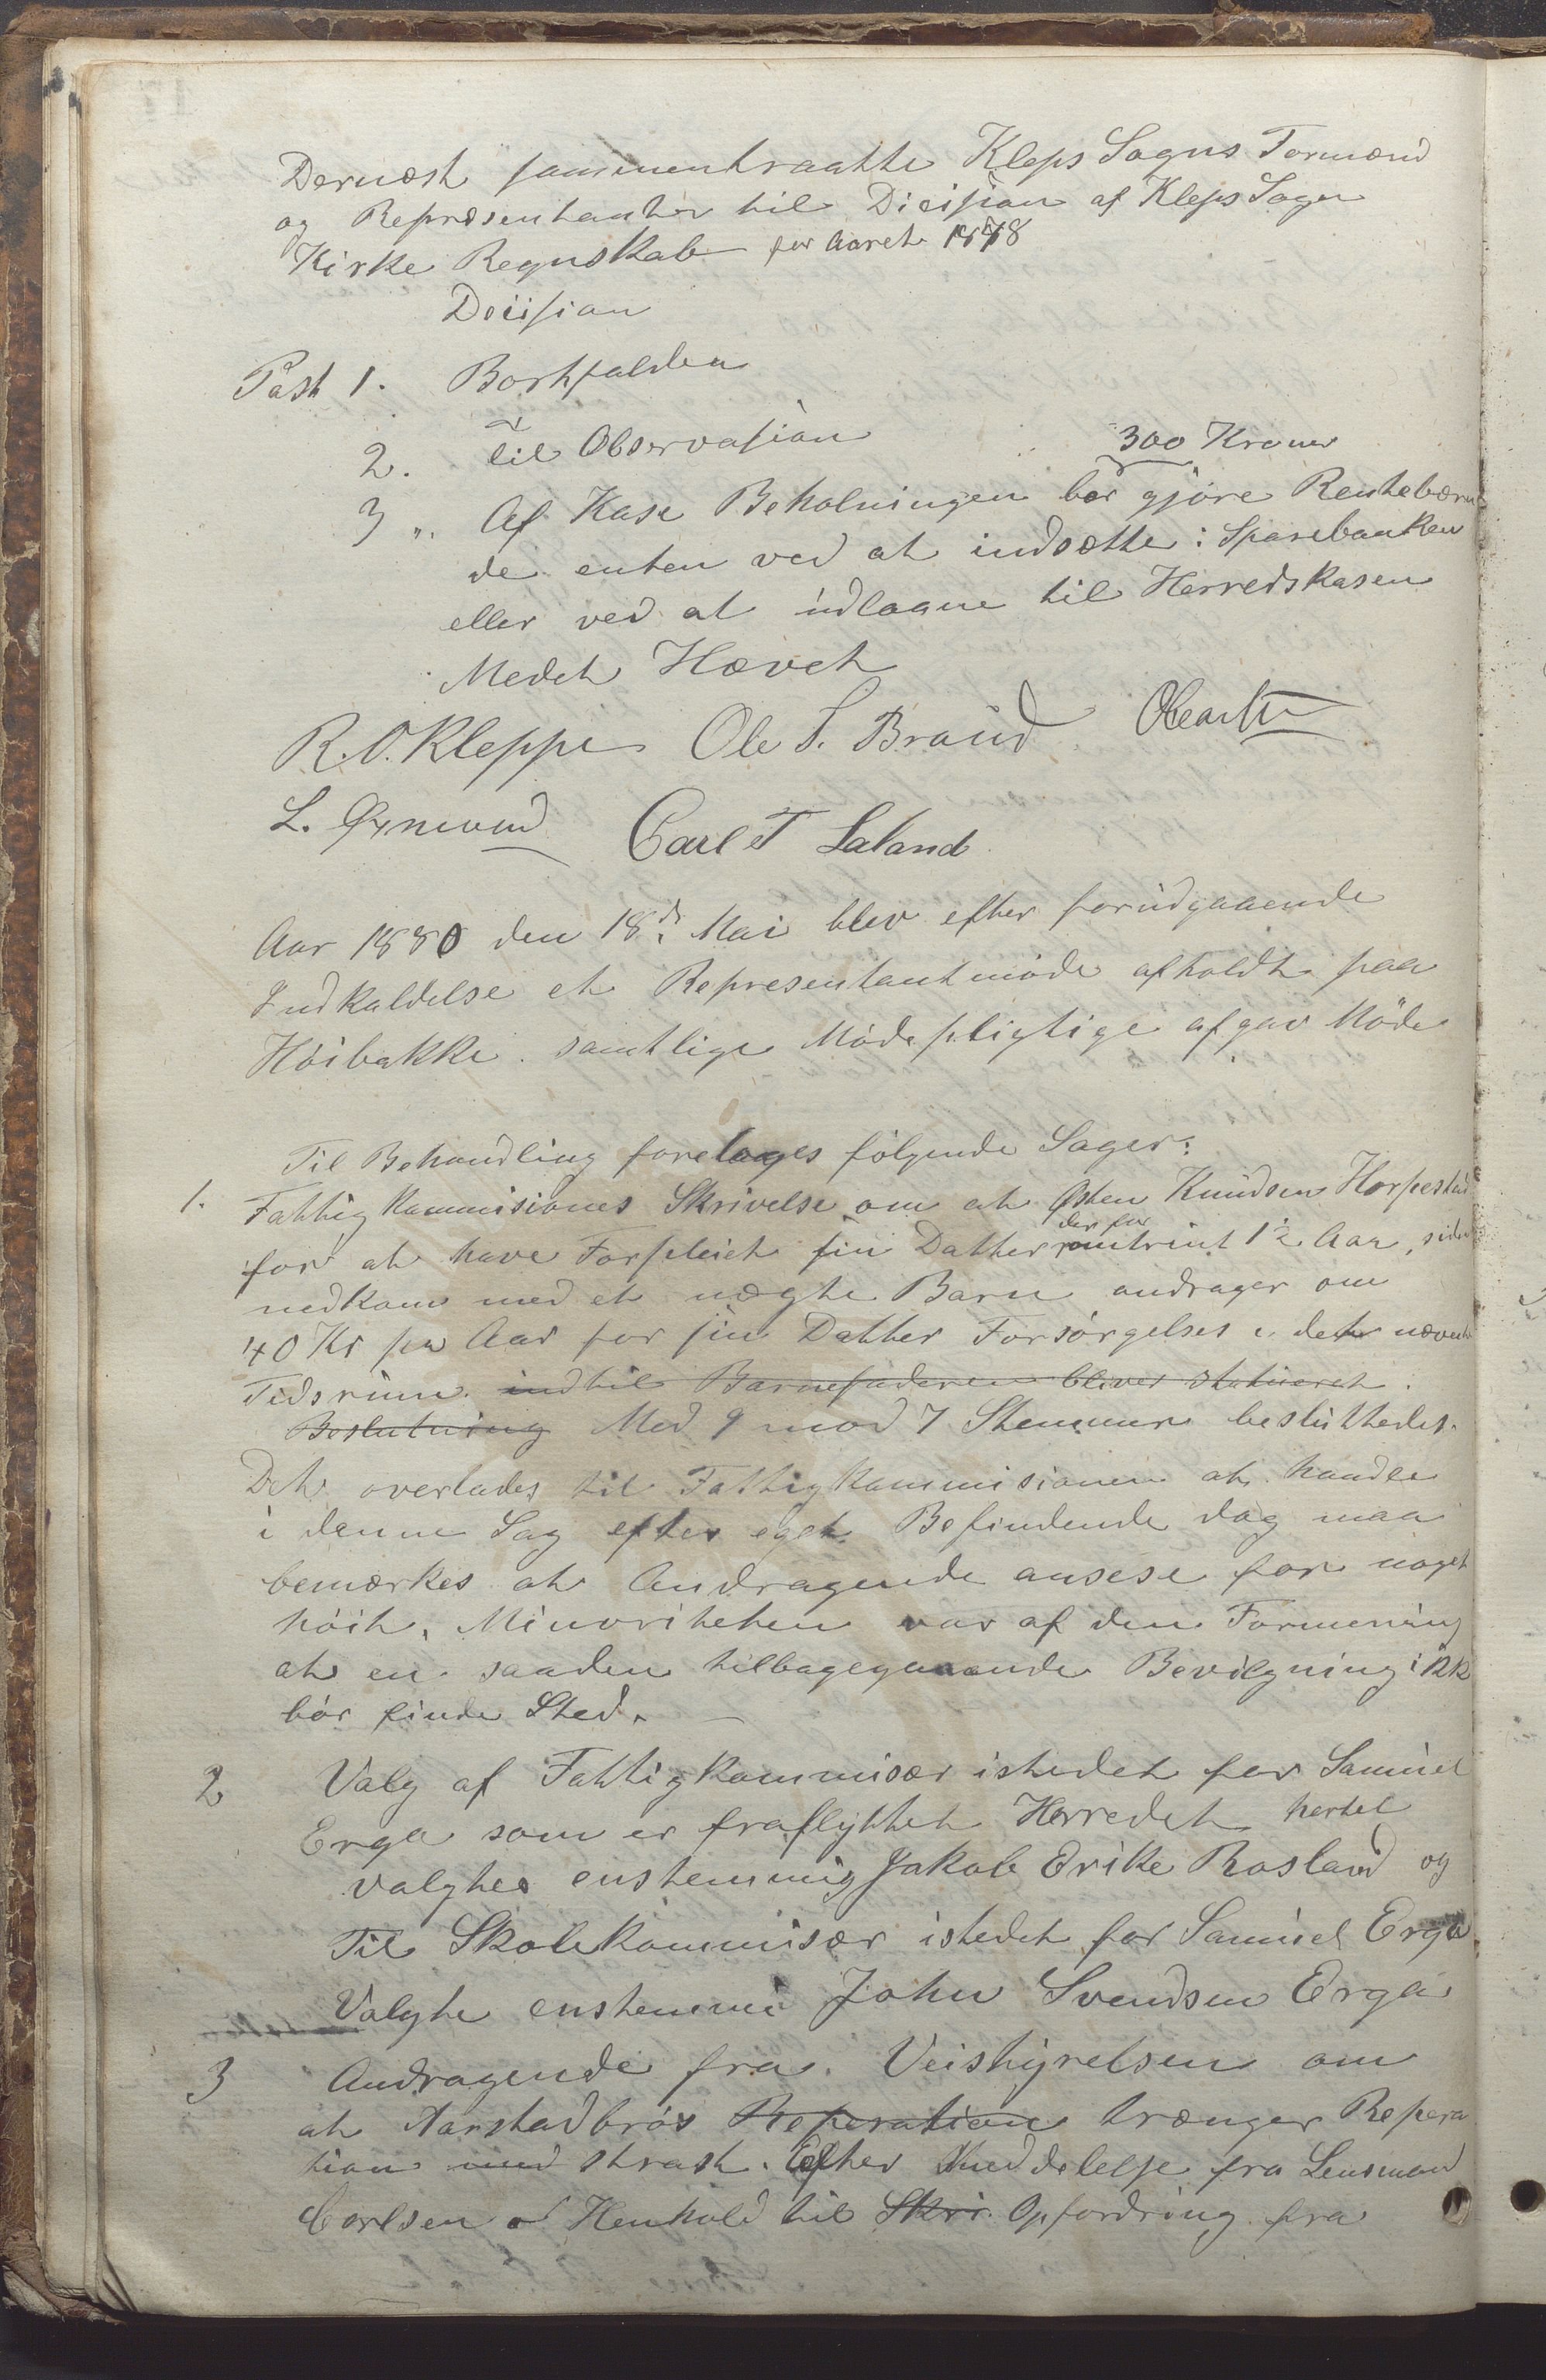 Dernæst sammentraatte Kleps Sogns Formænd
og Repræsentanter til Dicisian af Kleps Sogn
Kirke Regnskab for Aaret 1878
Deiisian
Post 1. Bortfalden
2. til Observasian
300 Kroner
3 ". Af Kase Beholningen bør gjøre Rentebæren
de enten ved at indsætte i Sparebanken
eller ved at udlaane til Herredskasen
Mødet Hævet
R. O. Kleppe Ole S. Braud
L. Øxnevad Carl T Laland
Aar 1880 den 18d. Mai blev efter forudgaaende
Indkaldelse et Representantmøde afholdt paa
Höibakke. samtlige Mödepligtige afgav Möde
Til Behandling foretages følgende Sager:
1. Fattigkommisiones Skrivelse om at Østen Knudsen Horpestad
for at have Forpleiet sin Datter der for omtrint 1½ Aar, siden
nedkom med et uægte Barn andrager om
40 Kr pr Aar for sin Datter Forsørgelses i det nævnte
Tidsrum. indtil Barnefaderen bliver
Beslutning Med 9 mod 7 Stemmer besluttedes.
Det overlades til Fattigkommisionen at handle
i denne Sag efter eget Befindende dog maa
bemærkes at Andragende ansese for noget
höit. Minoriteten var af den Formening
at en saaden tilbagegaaende Bevilgning ikk
bör finde Sted.
2 Valg af Fattigkommisær istedet for Samuel
Erga som er fraflyttet Herredet hertel
valgtes enstemmig Jakob Erike Rosland og
Til Skolekommisær istedet for Samuel Erga
Valgte enstemmi John Svendsen Erga
3 Andragende fra Veistyrelsen om
at Aarstadbröx Reperation trænger Repera
tion med strask. Efter Meddelelse fra Lensmand
Carlsen i Henhold til Skri. Opfordring fra